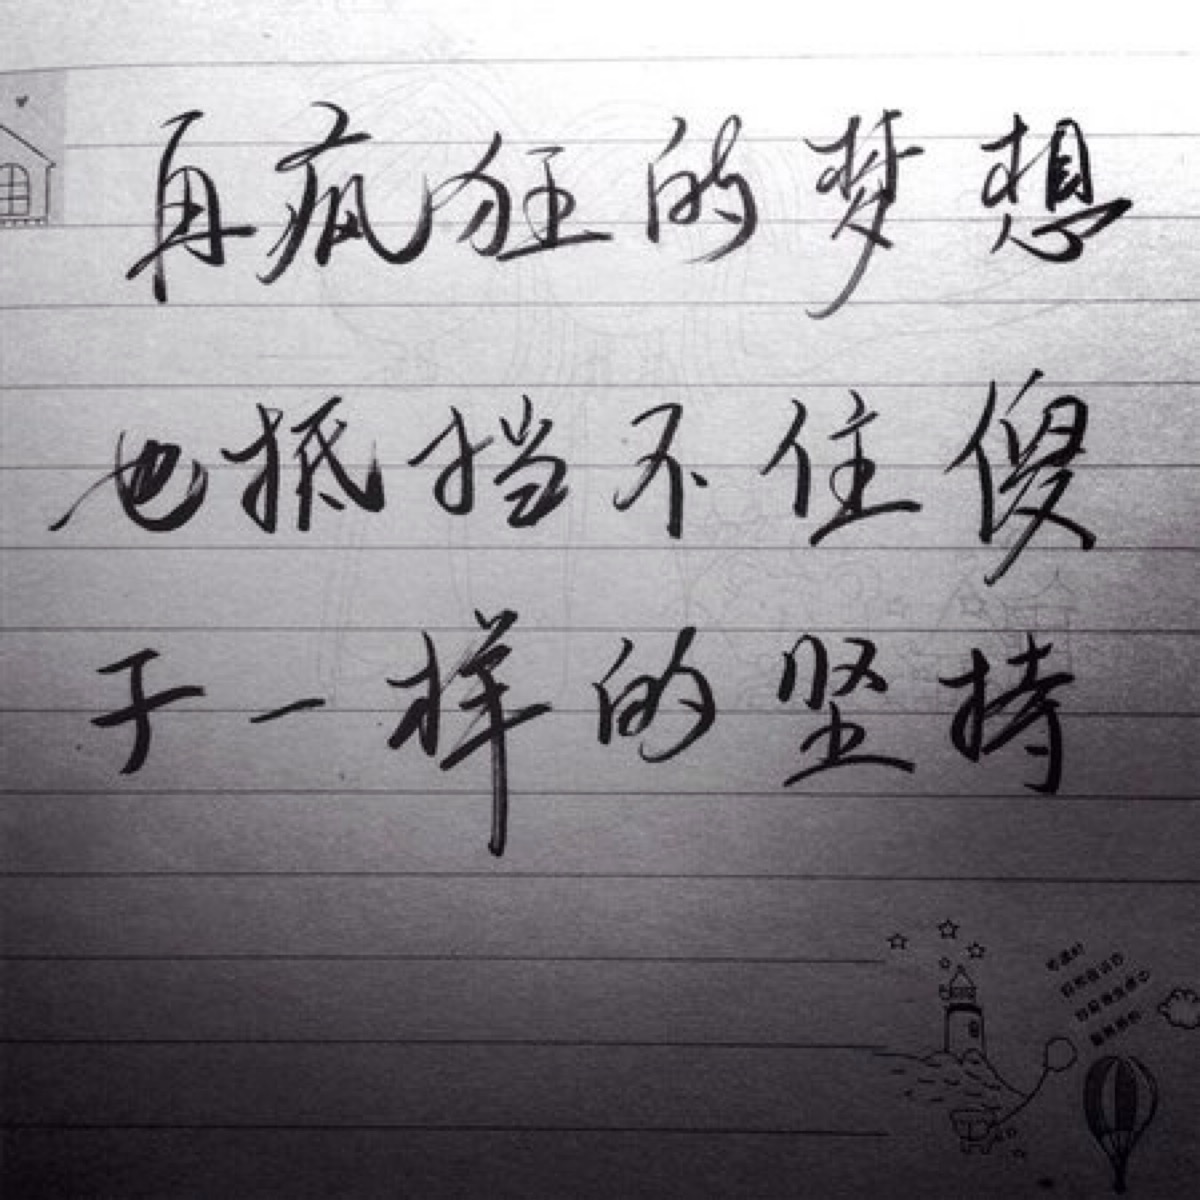 再疯狂的梦想
也抵挡不住傻
子一样的坚持